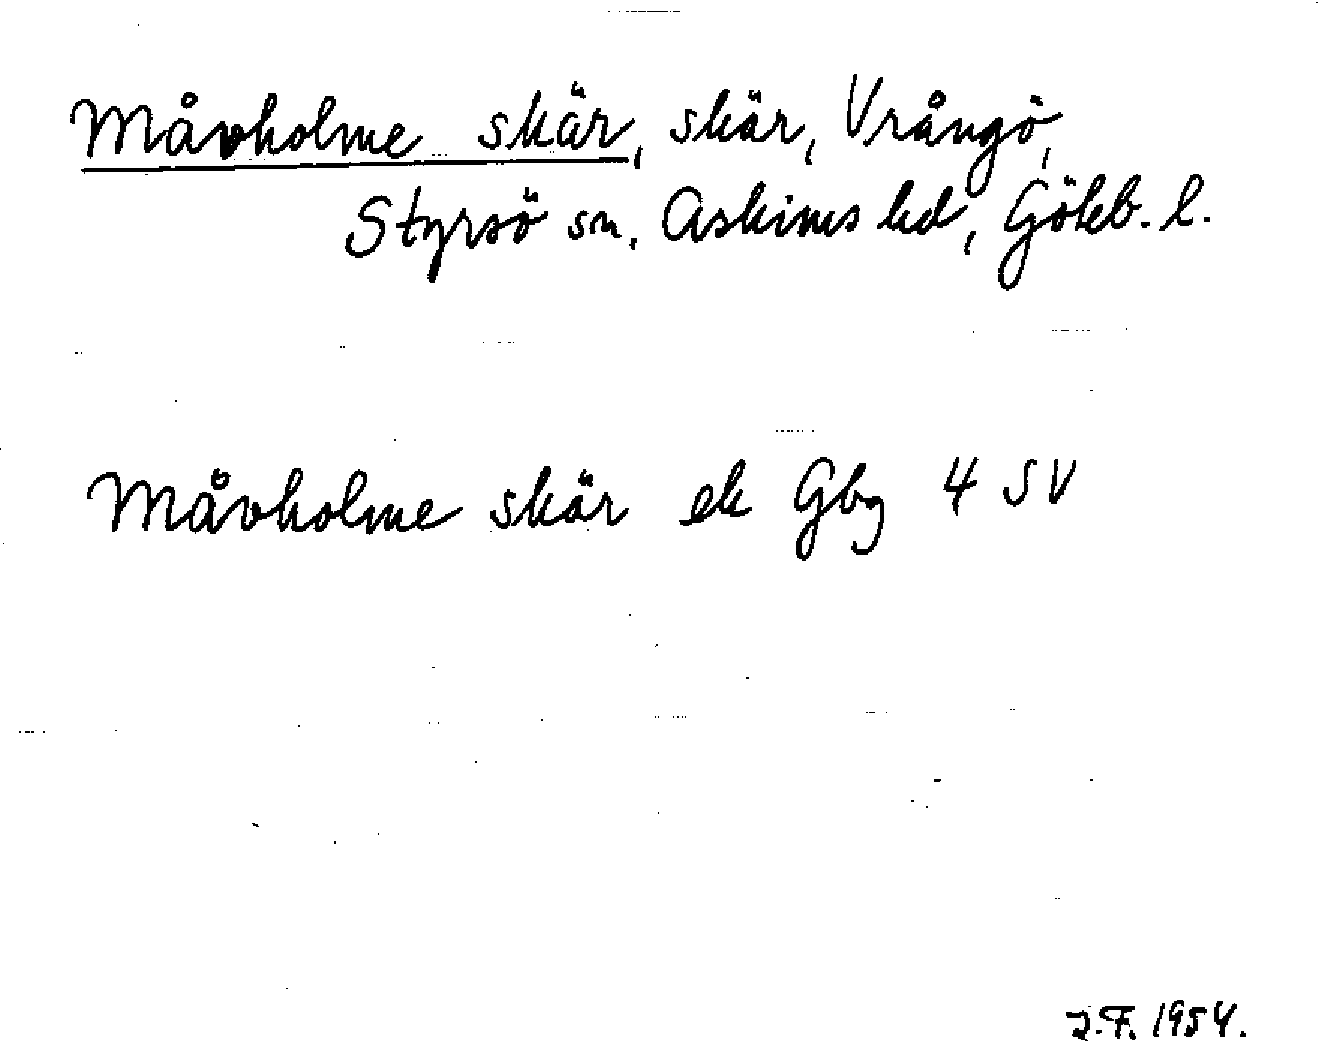 Måvholme skär, skär, Vrångö,
Styrsö sn, Askims hd, Götkb. l.
Måvholme skär ek Gbg 4 SV
J.F. 1954.